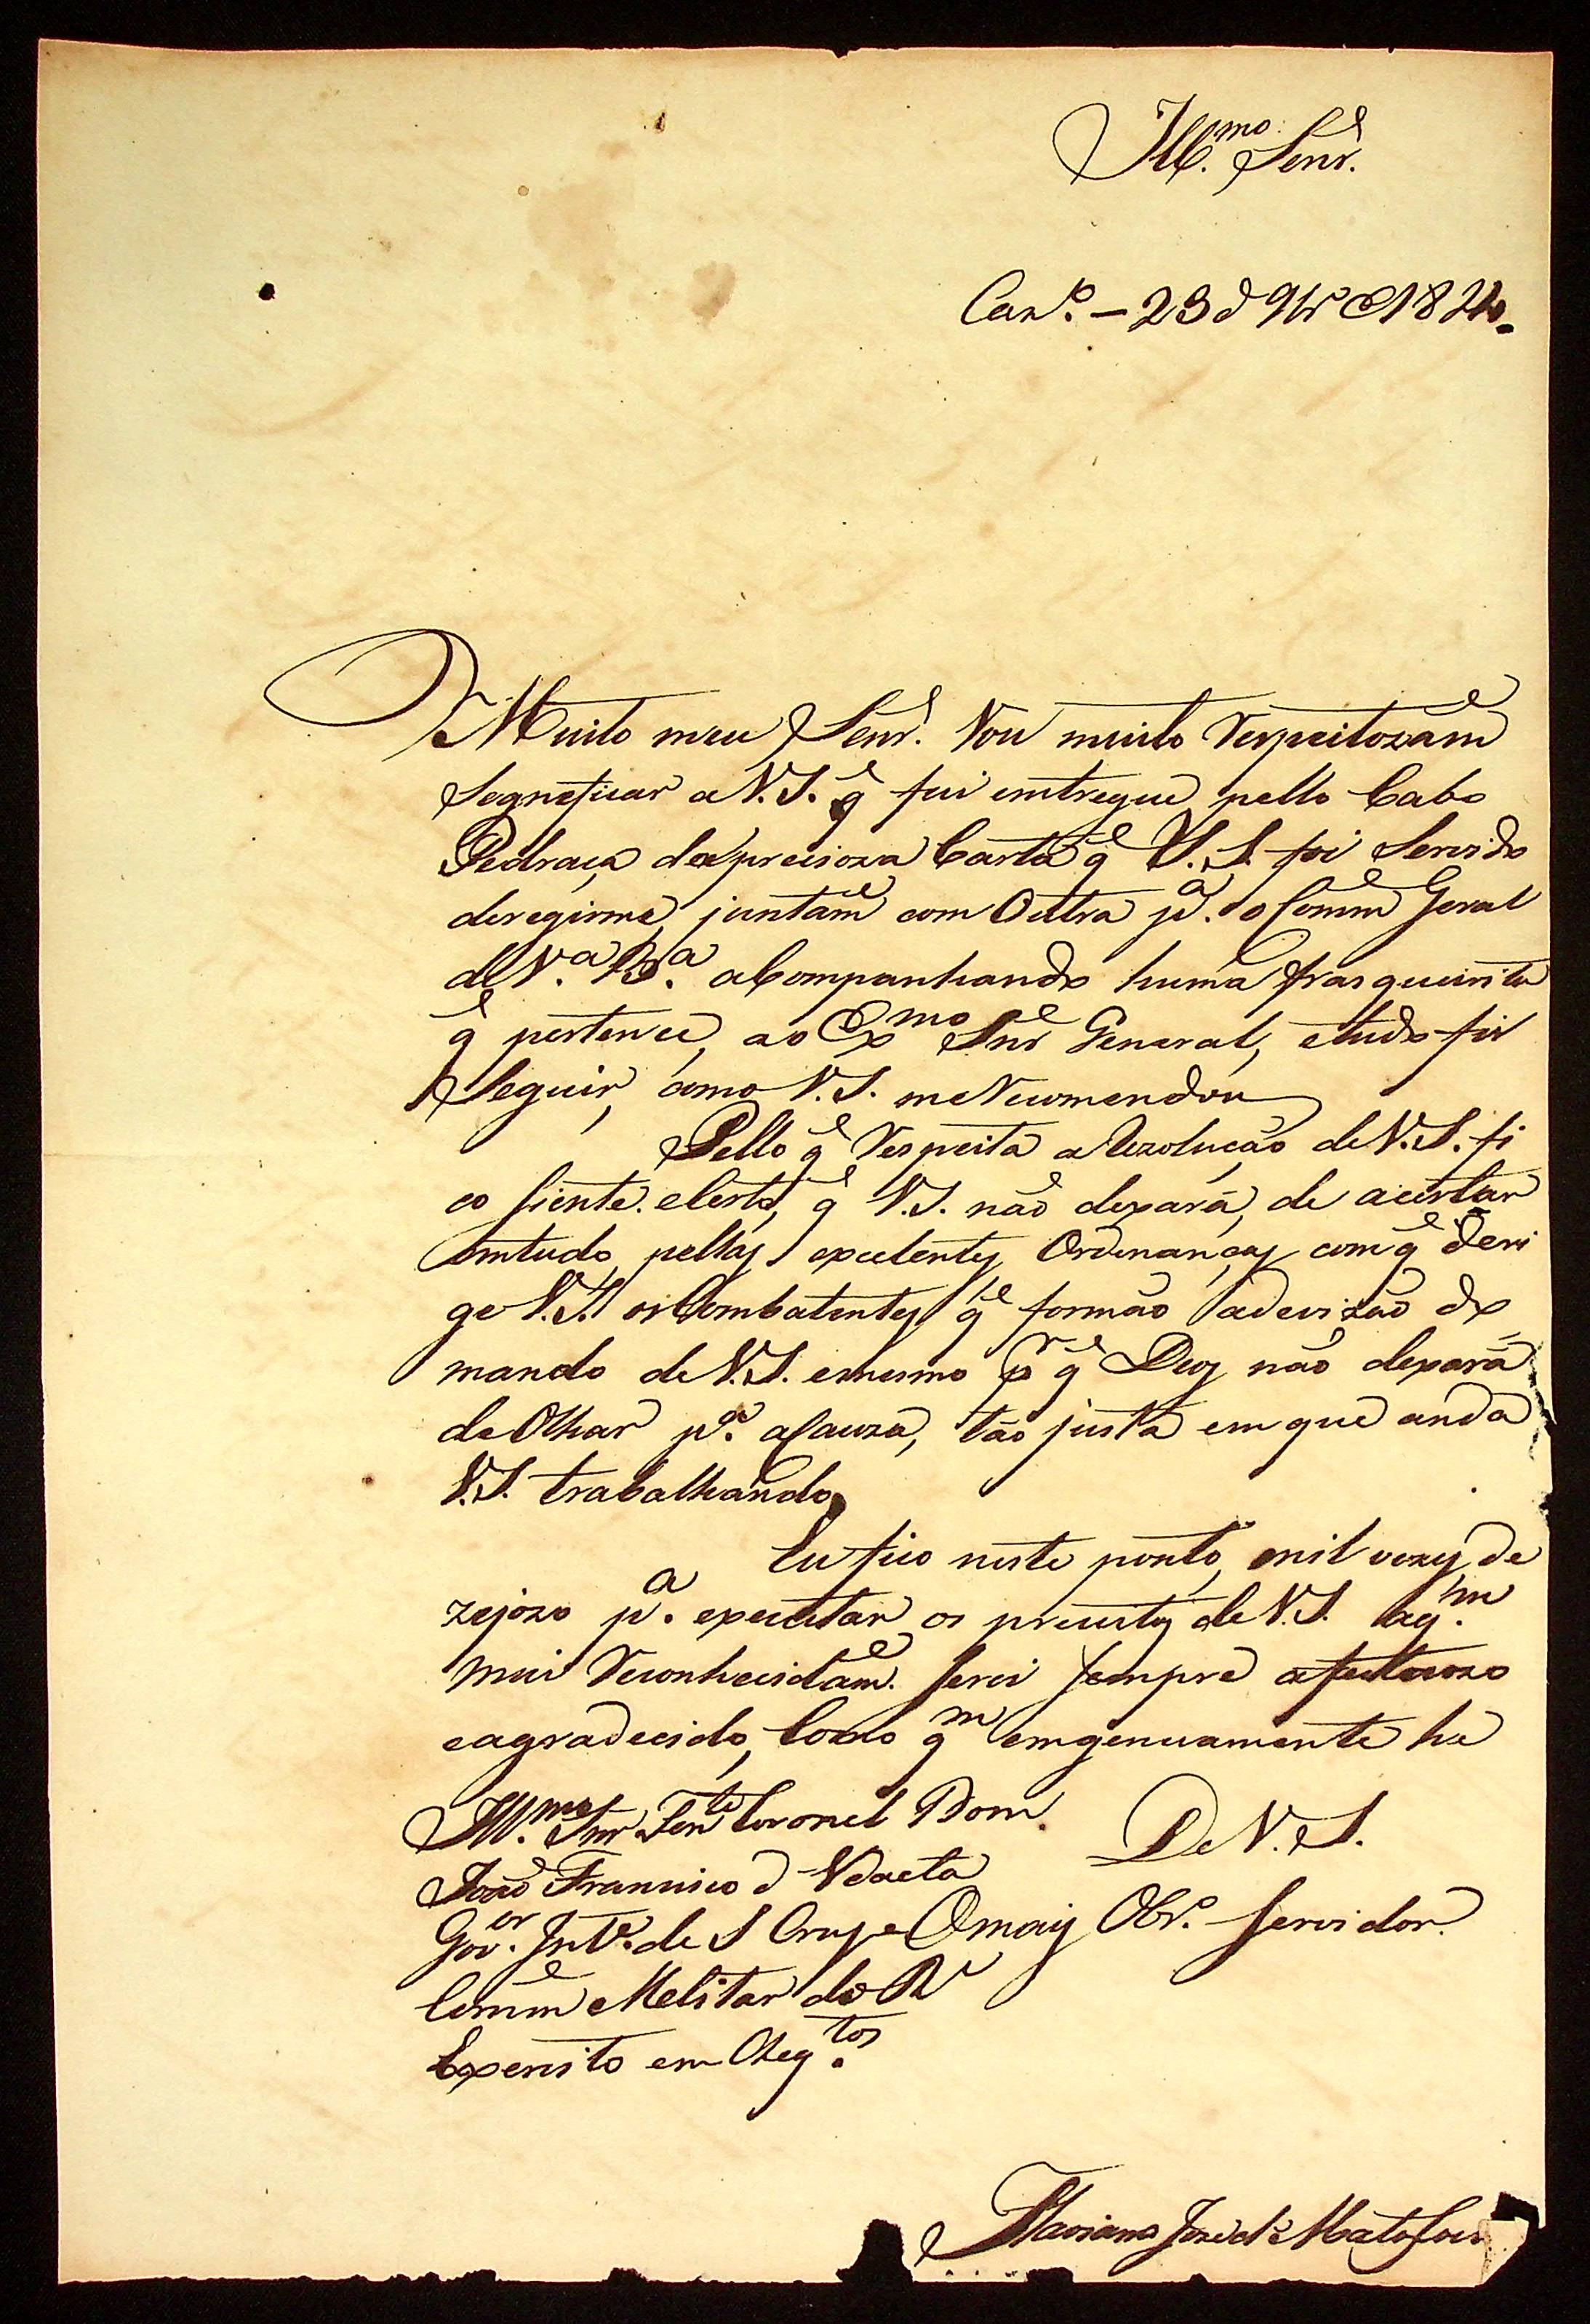 Ill.mo Senr.
Caz.o – 23 d 9br e 1824.
Muito meu Senr. Vou muito Respeitozam.e
Segneficar a V.S. q̃ fui emtregue pello Cabo
Pedraça da precioza Carta q̃ V.S. foi Servido
deregirme, juntam.e com Outra p.a o Comm.e Geral
de V.a B.a aCompanhando huma frasqueirita
q̃ pertence, ao Ex.mo Snr General, e tudo fis
Seguir, como V.S. me Recomendou
Pello q̃ Respeita a Rezolução de V.S. fi
co siente e Certo, q̃ V.S. não dexará, de acertar
emtudo pellas excelentes Ordenanças com q̃ deri
ge V.S. os Combatentes q̃ formão a devizão do
mando de V.S. e mesmo p.r q̃ Deos não dexará
de Olhar p.a a Cauza, tão justa em que anda
V.S. trabalhando
Eu fico neste ponto, mil vezes de
zejozo p.a executar os preceitos de V.S. a q.m
mui Reconhecidam.e serei sempre afectuozo
e agradecido, Como q.m emgenuamente he
Ill.mo Snr Ten.te Coronel Dom. De V.S.
João Francisco d Vdaeta
Gov.or Int.o de S Cruz e O mais Obr.o Servidor
Comm.e Melitar do R
Exercito em Cheq.tos
Mariano Joze de Mato